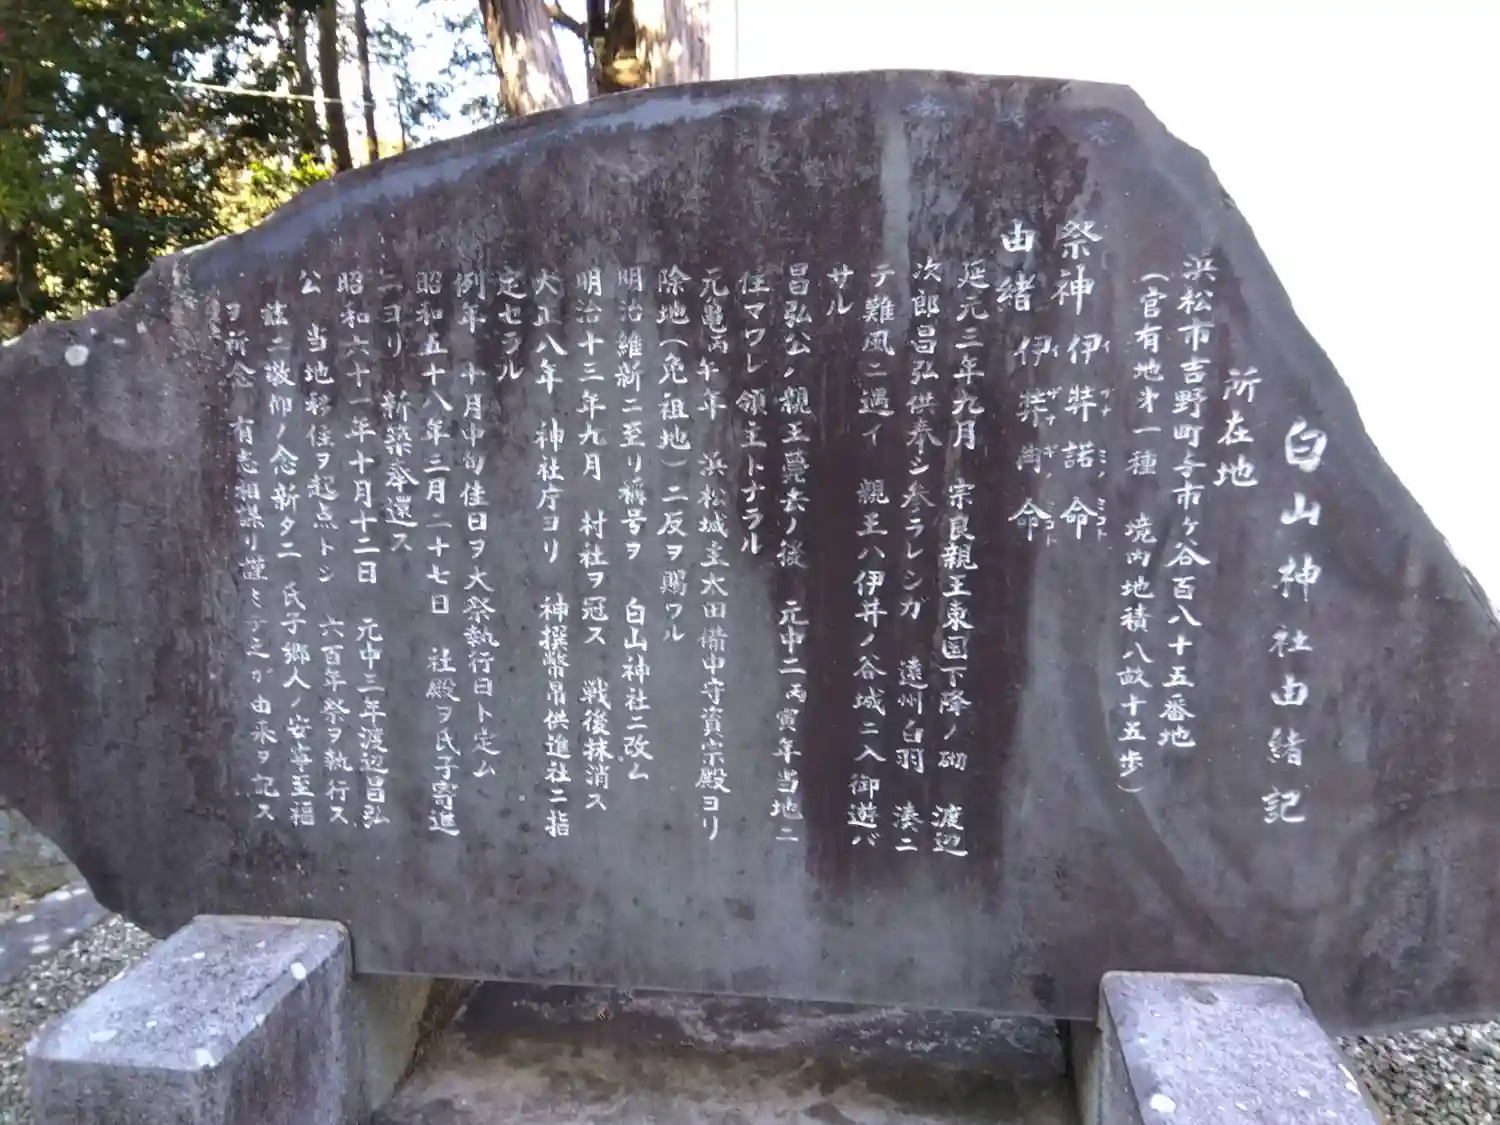 白山神社由緒記
所在地
浜松市吉野町与市ヶ谷百八十五番地
(官有地才一種 境内地積八畝十五歩)
祭神 伊弉諾命
イザナミノミコト
伊弉冉命
イザナギノミコト
由緒
延元三年九月 宗良親王東国下降ノ砌 渡辺
次郎昌弘供奉シ参ラレシガ 遠州白羽 湊ニ
テ難風ニ遇イ 親王ハ伊井ノ谷城ニ入御遊バ
サル
昌弘公ノ親王薨去ノ後 元中二丙寅年当地ニ
住マワレ領主トナラル
元亀丙午年 浜松城主太田備中守資宗殿ヨリ
除地(免祖地)二反ヲ賜ワル
明治維新ニ至リ稱号ヲ 白山神社ニ改ム
明治十三年九月 村社ヲ冠ス 戦後抹消ス
大正八年 神社庁ヨリ 神撰幣帛供進社ニ指
定セラル
例年 十月中旬佳日ヲ大祭執行日ト定ム
昭和五十八年三月二十七日 社殿ヲ氏子寄進
ニヨリ 新築奉還ス
昭和六十一年十月十二日 元中三年渡辺昌弘
公 当地移住ヲ起点トシ 六百年祭ヲ執行ス
茲ニ敬仰ノ念新タニ 氏子郷人ノ安寧至福
ヲ祈念 有志相謀リ謹ミ之が由来ヲ記ス